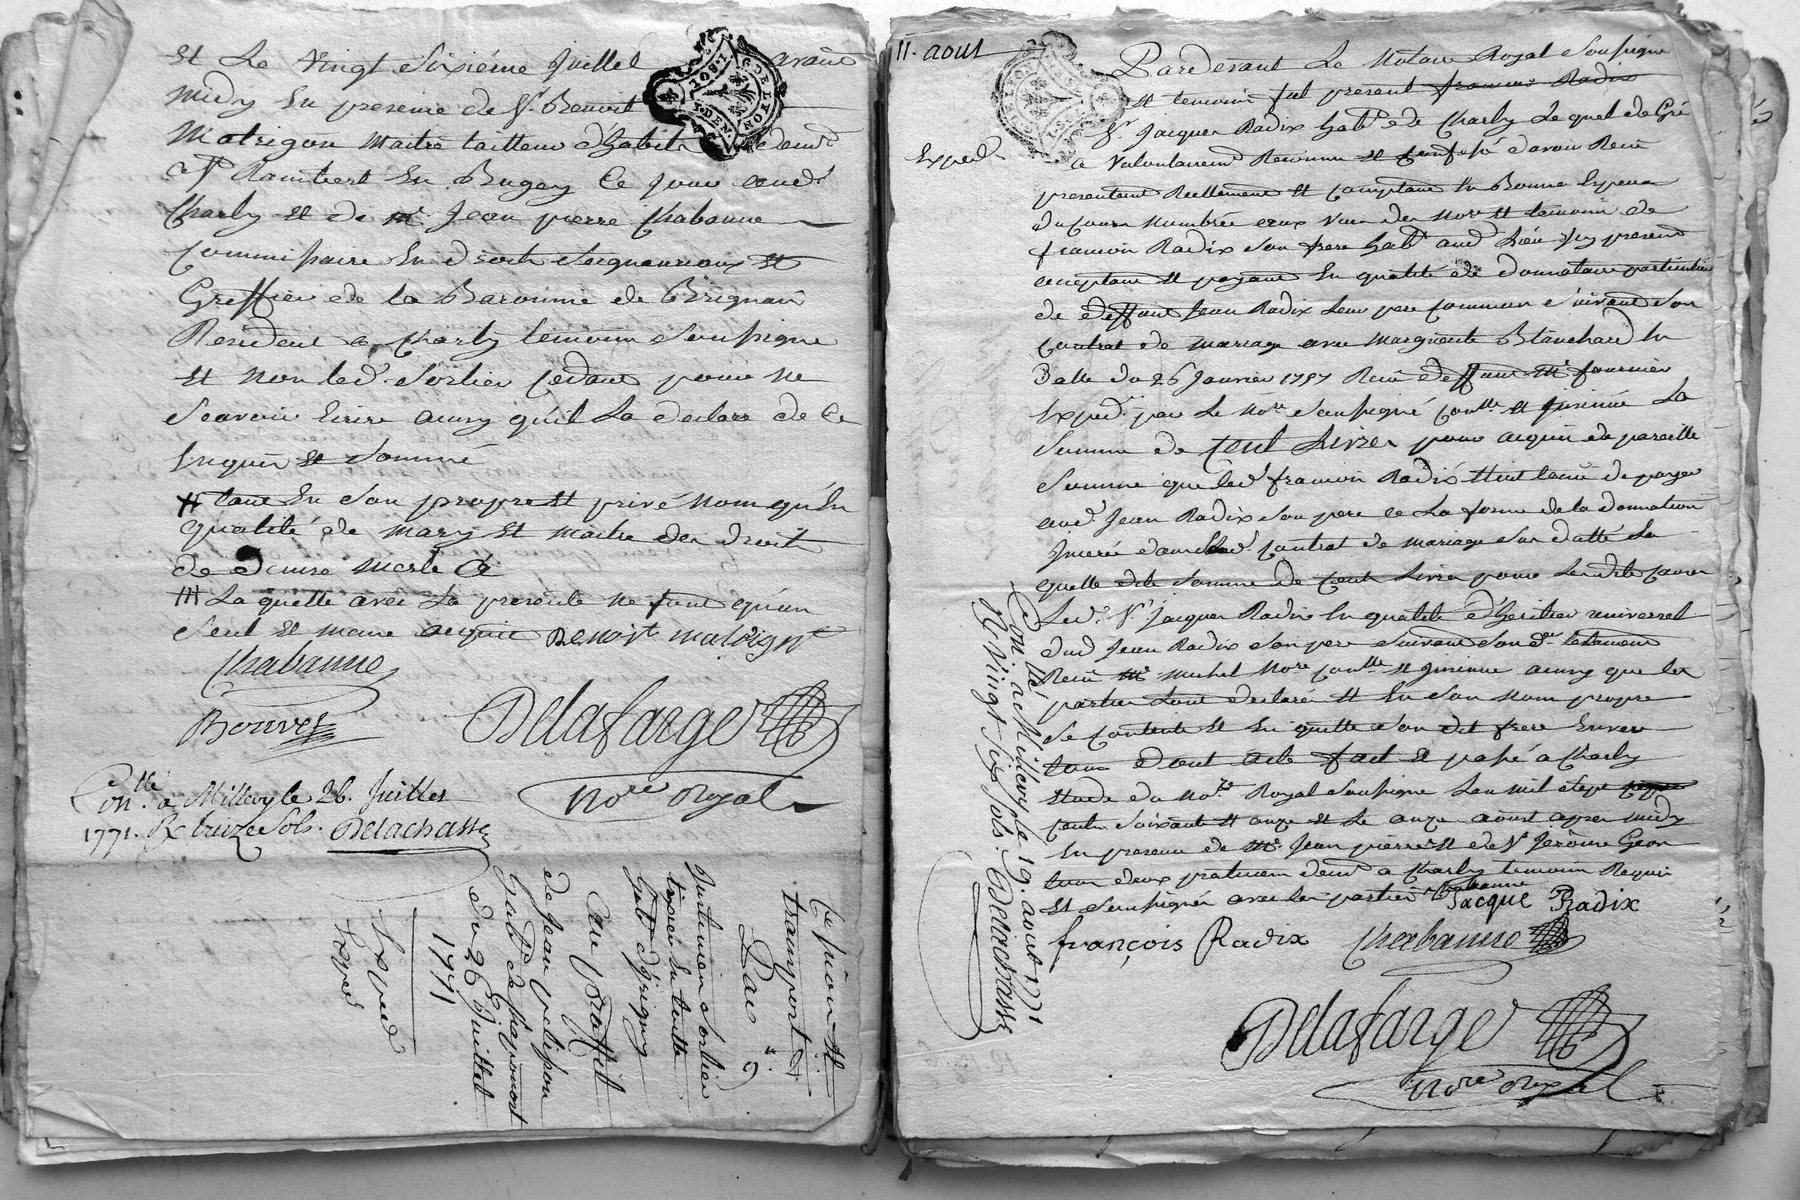 Et Le vingt Sixiéme Juillet avant
midy En presence de Sr. Benoit
Matrigon Maitre tailleur d'habits demt.
a St. Rambert En Bugey Ce jour aud.
Charly et de me. Jean pierre Chabanne
Commissaire En droits Seigneuriaux et
Greffier de la Baronnie de Brignais
Resident a Charly temoins Soussigné
et non led. Sorlier Cedant pour ne
Scavoir Ecrire ainsy qu'il La declaré de Ce
Enquis et Sommé
# tant En Son propre et privé nom qu'en
qualité de mary et maitre des droits
de
## La quelle avec La presente ne font qu'un
Seul et meme acquit Benoit matrignt
Chabanne
Bouvet
Delafarge
Nore Royal
Contlé. a Millery le 26. Juillet
1771. R. treize Sols. Delachasse
Cession et
transport
Par
Justinien Sorlier
tissier En toille
habt. d'irigny
Au proffit
de Jean
habt. de
du 26 Juillet
1771
Exped
11. aout
Exped.
Pardevant Le Notaire Royal Soussigné
et temoins fut present francois Radix
Sr. Jacques Radix habt. de Charly Lequel de Gré
a volontairemt. Reconnu et Confessé d'avoir Recu
presentement Reellement et Comptant En Bonnes Especes
du Cours Nombrées aux vues des Nore. et temoins de
francois Radix Son frere habt. aud. Lieu Icy present
acceptant et payant En qualité de donnataire particulier
de deffunt Jean Radix Leur pere Commun Suivant Son
Contrat de mariage avec marguerite Blanchard En
Datte du 26 Janvier 1757 Recu deffunt Me. fournier
Exped. par Le Nore. Soussigné Contlé. et Insinué La
Somme de Cent Livres pour acquit de pareille
Somme que led. francois Radix Etoit tenu de payer
aud. Jean Radix Son pere a La forme de la donnation
Inserée dans led. Contrat de mariage Sus datté La
quelle dite Somme de Cent Livres pour Les dites Causes
Led. Sr. Jacques Radix En qualité d'heritier universel
dud. Jean Radix Son pere Suivant Son dr. testament
Recu Me. Michel Nore. Contlé. et Insinué ainsy que les
parties L'ont declaré et En Son nom propre
Se Contente et En quitte Son dit frere Envers
tous dont acte fait et passé a Charly
Etude du Nore. Royal Soussigné Lan mil Sept
Cents Soixante et onze et Le onze aoust apres midy
En presence de Me. Jean pierre Chabanne et de Sr. Jérôme Geon
tous deux praticiens demt. a Charly temoins Requis
et Soussignés avec Les parties Jacque Radix
françois Radix Chabanne
Delafarge
Nore Royal
Contlé. a Millery le 19. aout 1771
R. vingt Six Sols. Delachasse